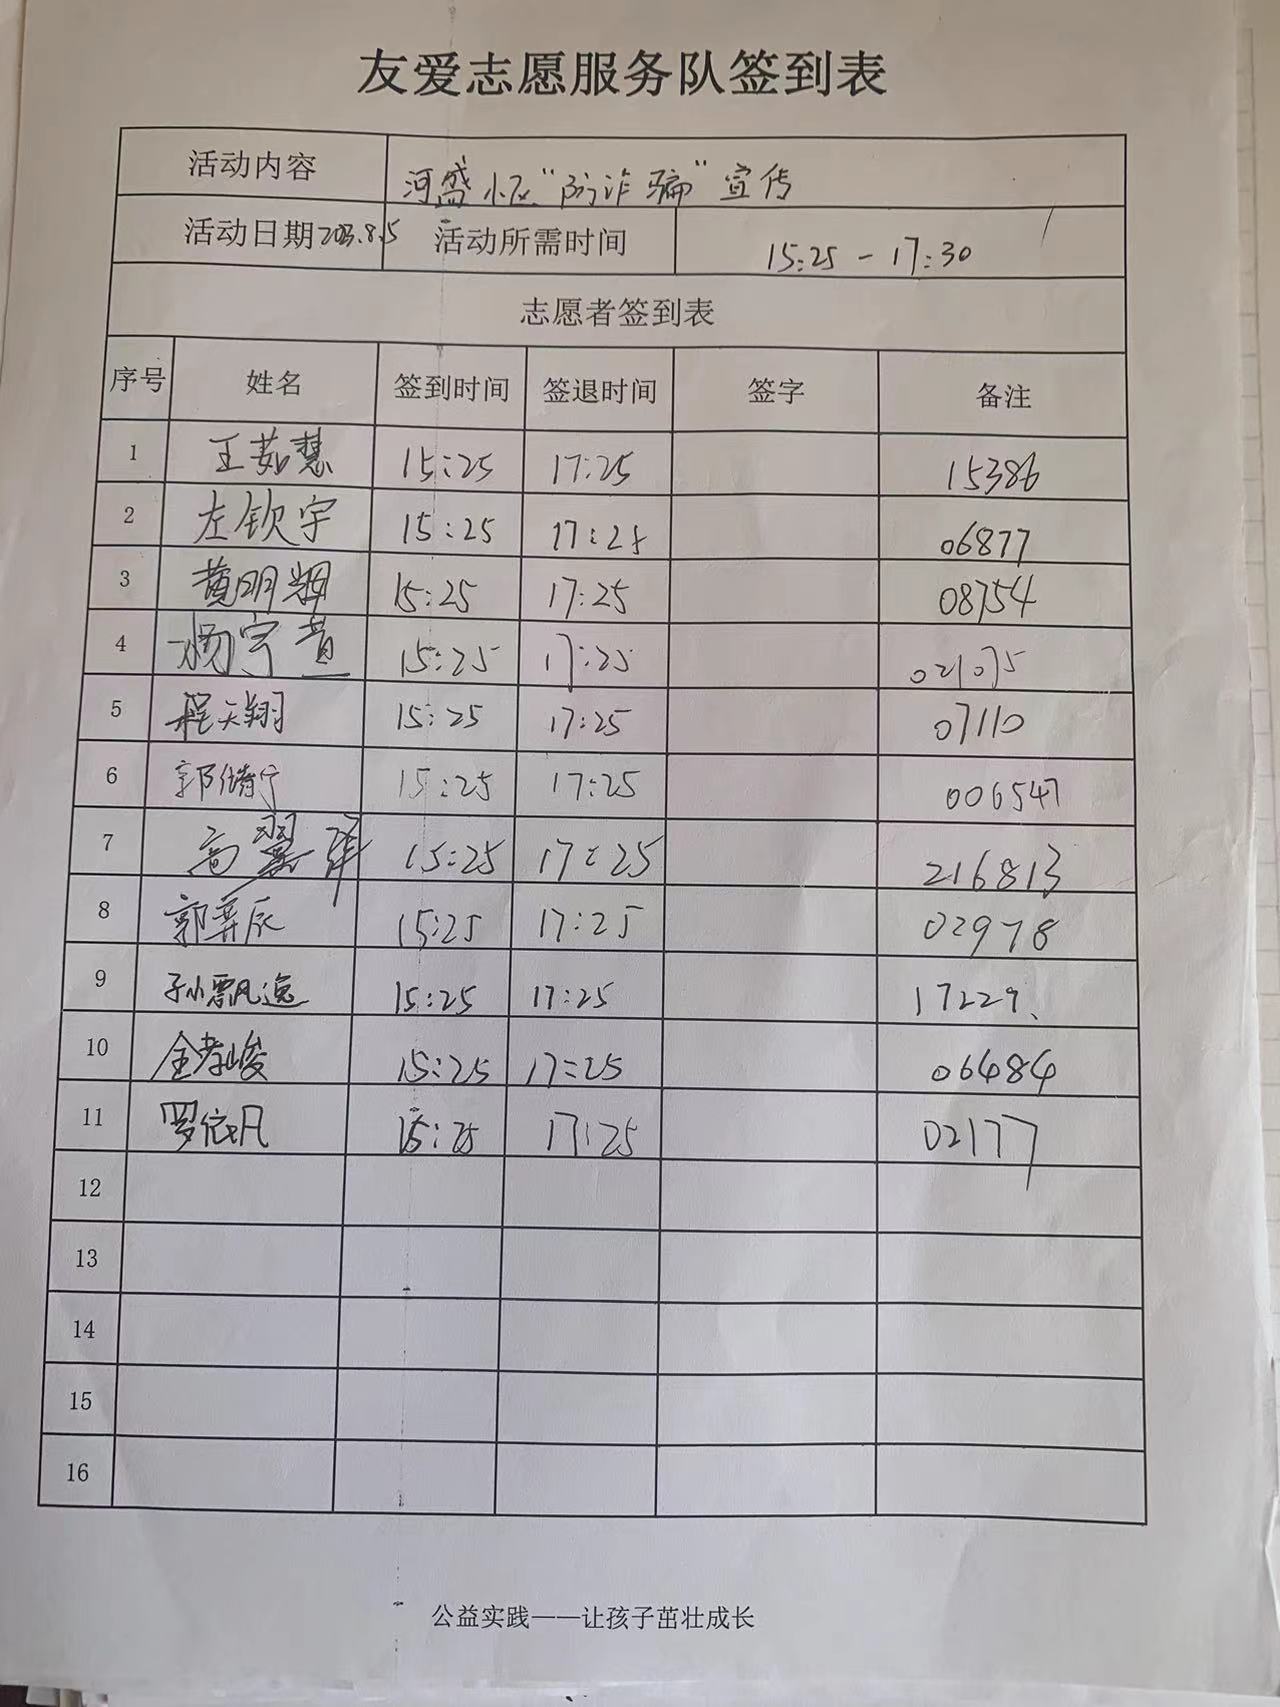 友爱志愿服务队签到表
活动内容 河盛小区“防诈骗”宣传
活动日期 2023.8.5 活动所需时间 15:25-17:30
志愿者签到表
序号 姓名 签到时间 签退时间 签字 备注
1 王茹慧 15:25 17:25 15386
2 左钦宇 15:25 17:25 06877
3 黄明翔 15:25 17:25 08754
4 杨宇萱 15:25 17:25 021075
5 程天翔 15:25 17:25 07110
6 郭倚宁 15:25 17:25 006547
7 高翼军 15:25 17:25 216813
8 郭弈辰 15:25 17:25 02978
9 孙飘逸 15:25 17:25 17229
10 全孝峻 15:25 17:25 06484
11 罗依凡 15:25 17:25 02177
12
13
14
15
16
公益实践——让孩子茁壮成长